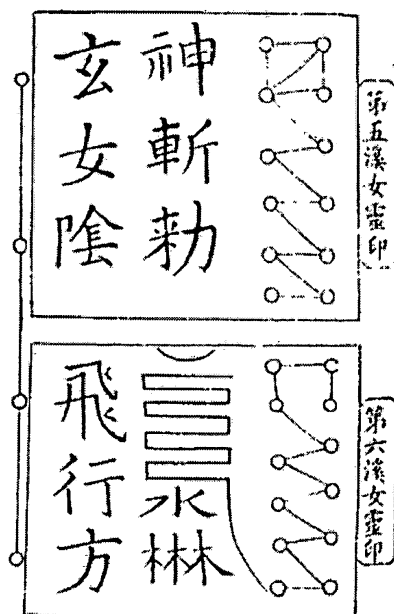 第五溪女靈印
神斬勅
玄女陰
第六溪女靈印
水
飛行方